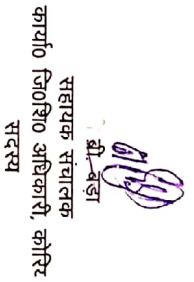 डी. बड़ा
सहायक संचालक
कार्या0 जि0शि0 अधिकारी, कोरिया
सदस्य